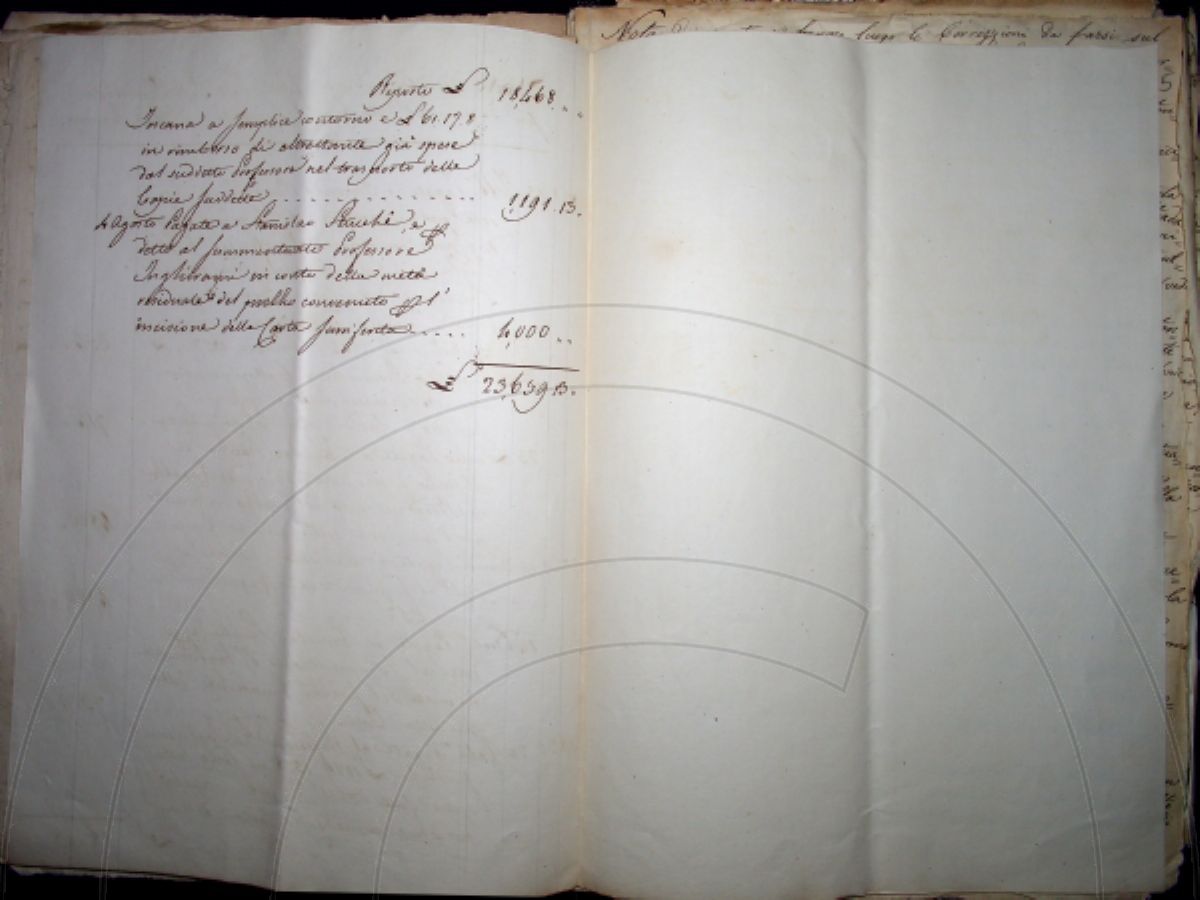 Riporto £ 18,468. „ „
Toscana a semplice contorno e £ 61.17.8
in rimborso di altrettante già spese
dal suddetto Professore nel trasporto delle
Copie suddette . . . . . . . . . . . . . 1,191.13.
4 Agosto Pagate a Stanislao Stucchi, e
detto al summentovato Professore
Inghirami in conto della metà
residuale del prezzo convenuto p l'
incisione della Carta surriferita . . . . . 4,000 „
£ 23,659.13.
Nota luogo le Correzzioni da farsi sul